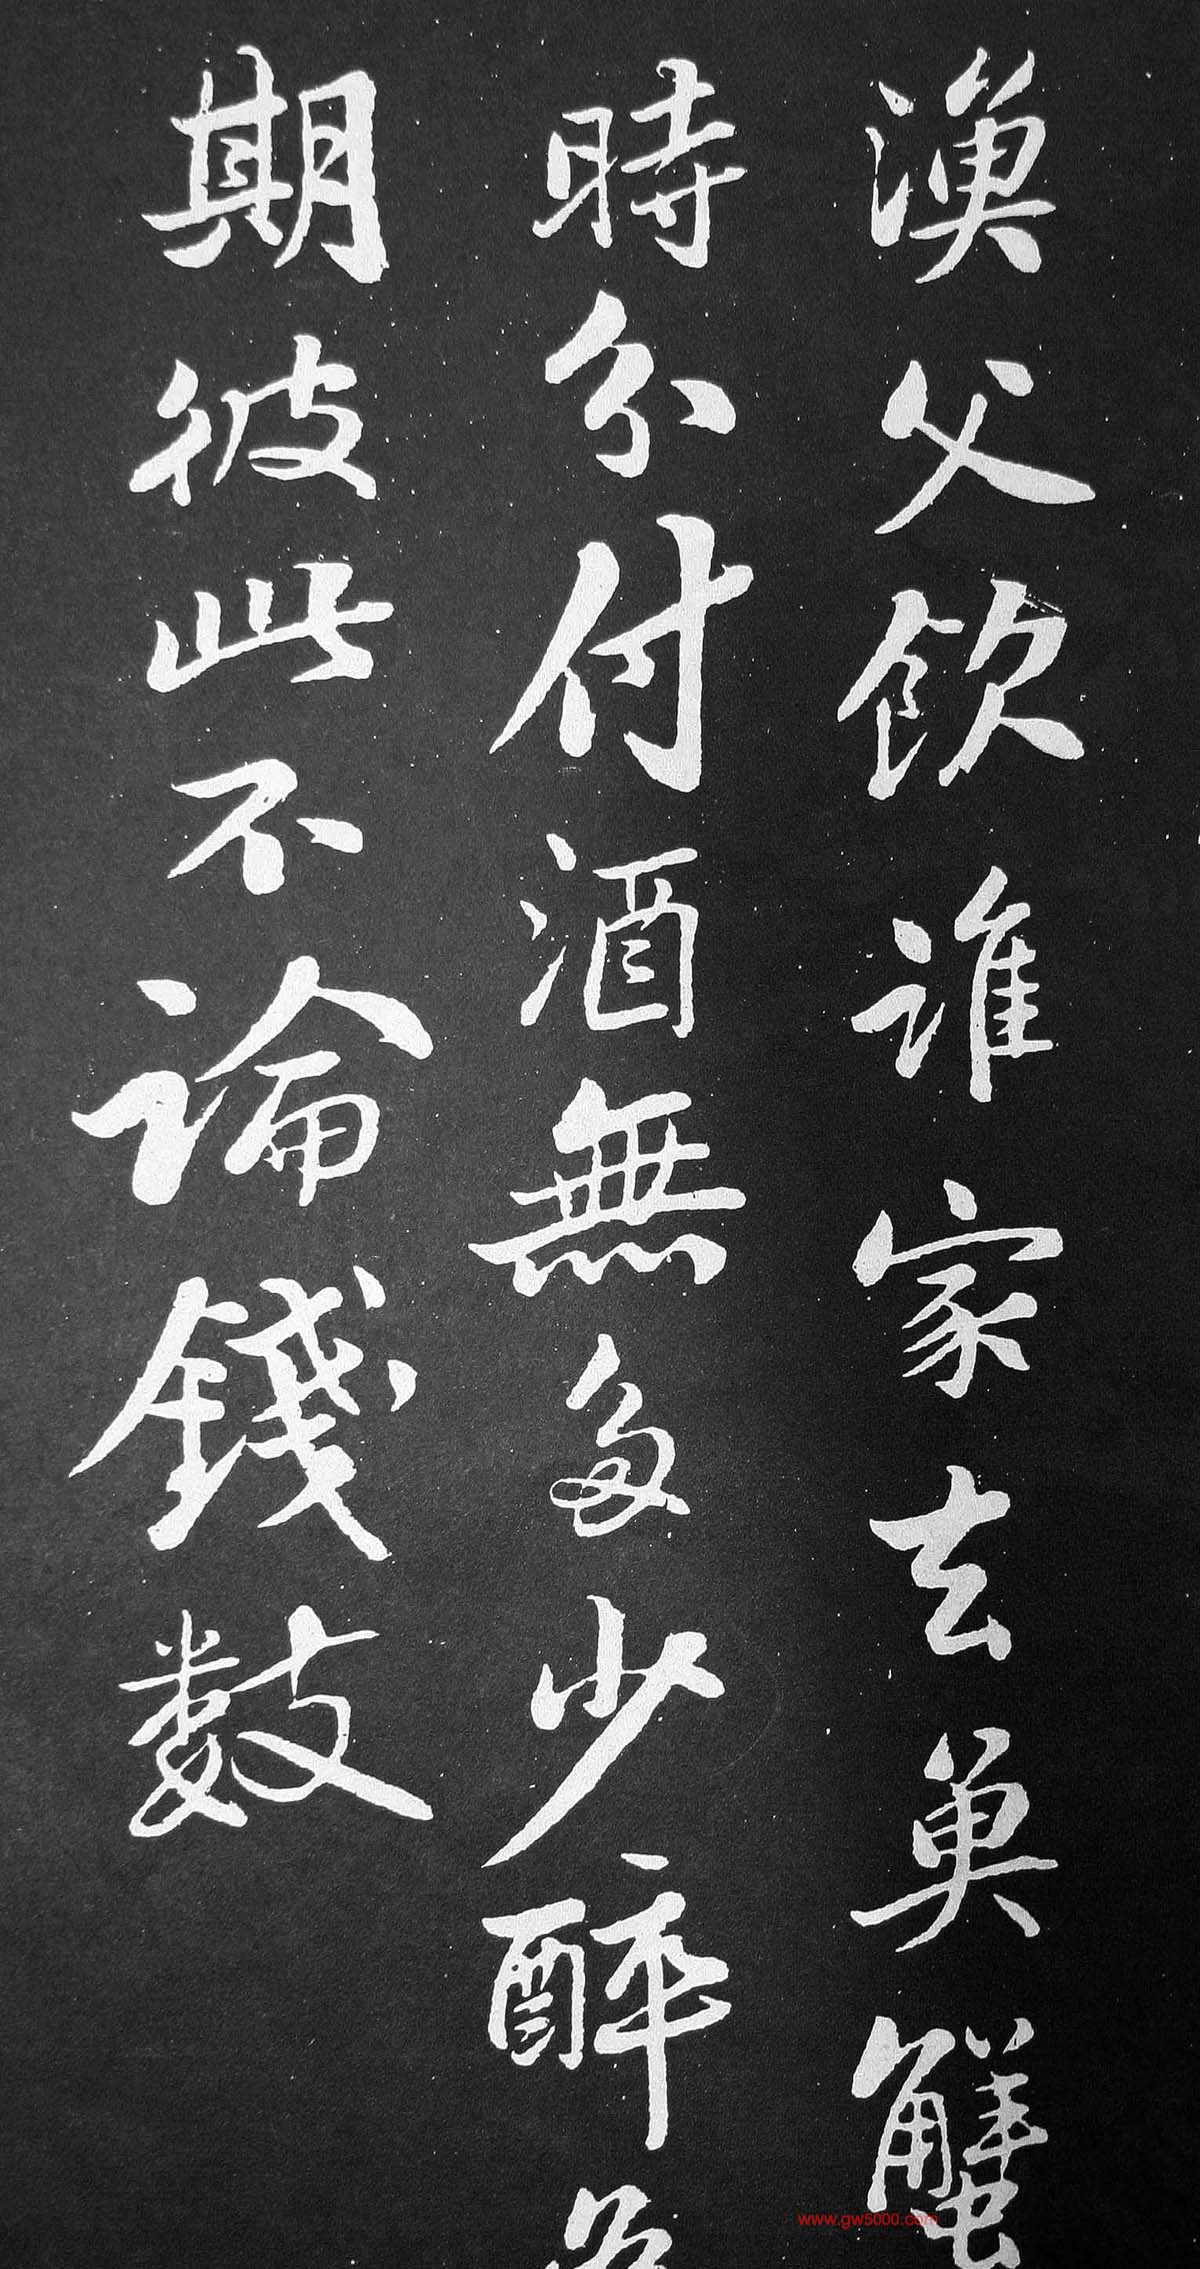 漁父飲誰家去魚蟹
時分付酒無多少醉為
期彼此不論錢數
www.gw5000.com